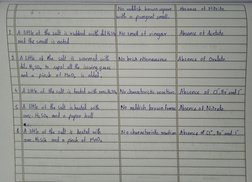 No reddish brown vapour Absence of Nitrite.
with a pungent smell.
2 A little of the salt is rubbed with dil. H₂SO₄ No smell of vinegar Absence of Acetate
and the smell is noted.
3 A little of the salt is warmed with No brisk effervescence Absence of Oxalate.
dil. H₂SO₄ to expel all the
and a pinch of MnO₂ is added.
4 A little of the salt is heated with conc. H₂SO₄ No characteristic reaction Absence of Cl⁻, Br⁻ and I⁻
5 A little of the salt is heated with No reddish brown fumes Absence of Nitrate.
conc. H₂SO₄ and a paper ball
6 A little of the salt is heated with No characteristic reaction Absence of Cl⁻, Br⁻ and I⁻
conc. H₂SO₄ and a pinch of MnO₂